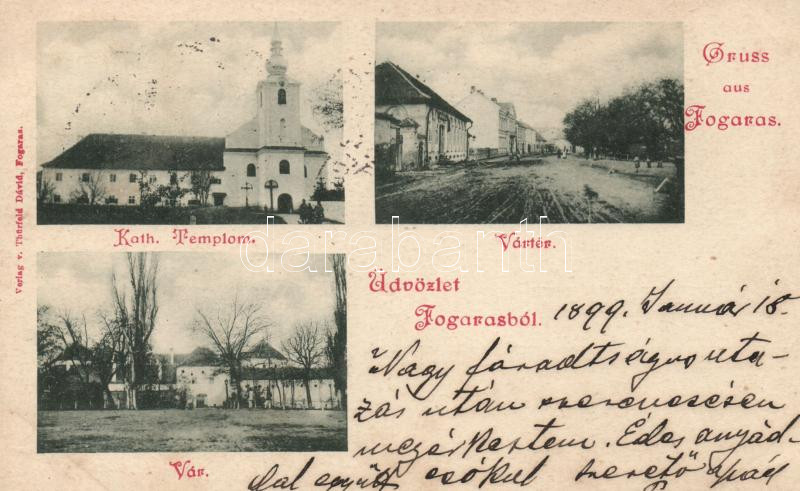 Gruss
aus
Fogaras.
Kath. Templom.
Vártér.
Verlag v. Thierfeld Dávid, Fogaras.
darabanth
Üdvözlet
Fogarasból.
1899. Január 18.
Nagy fáradtságos uta-
zás után szerencsésen
megérkeztem. Édes anyád-
dal együtt csókol szerető apád
Vár.